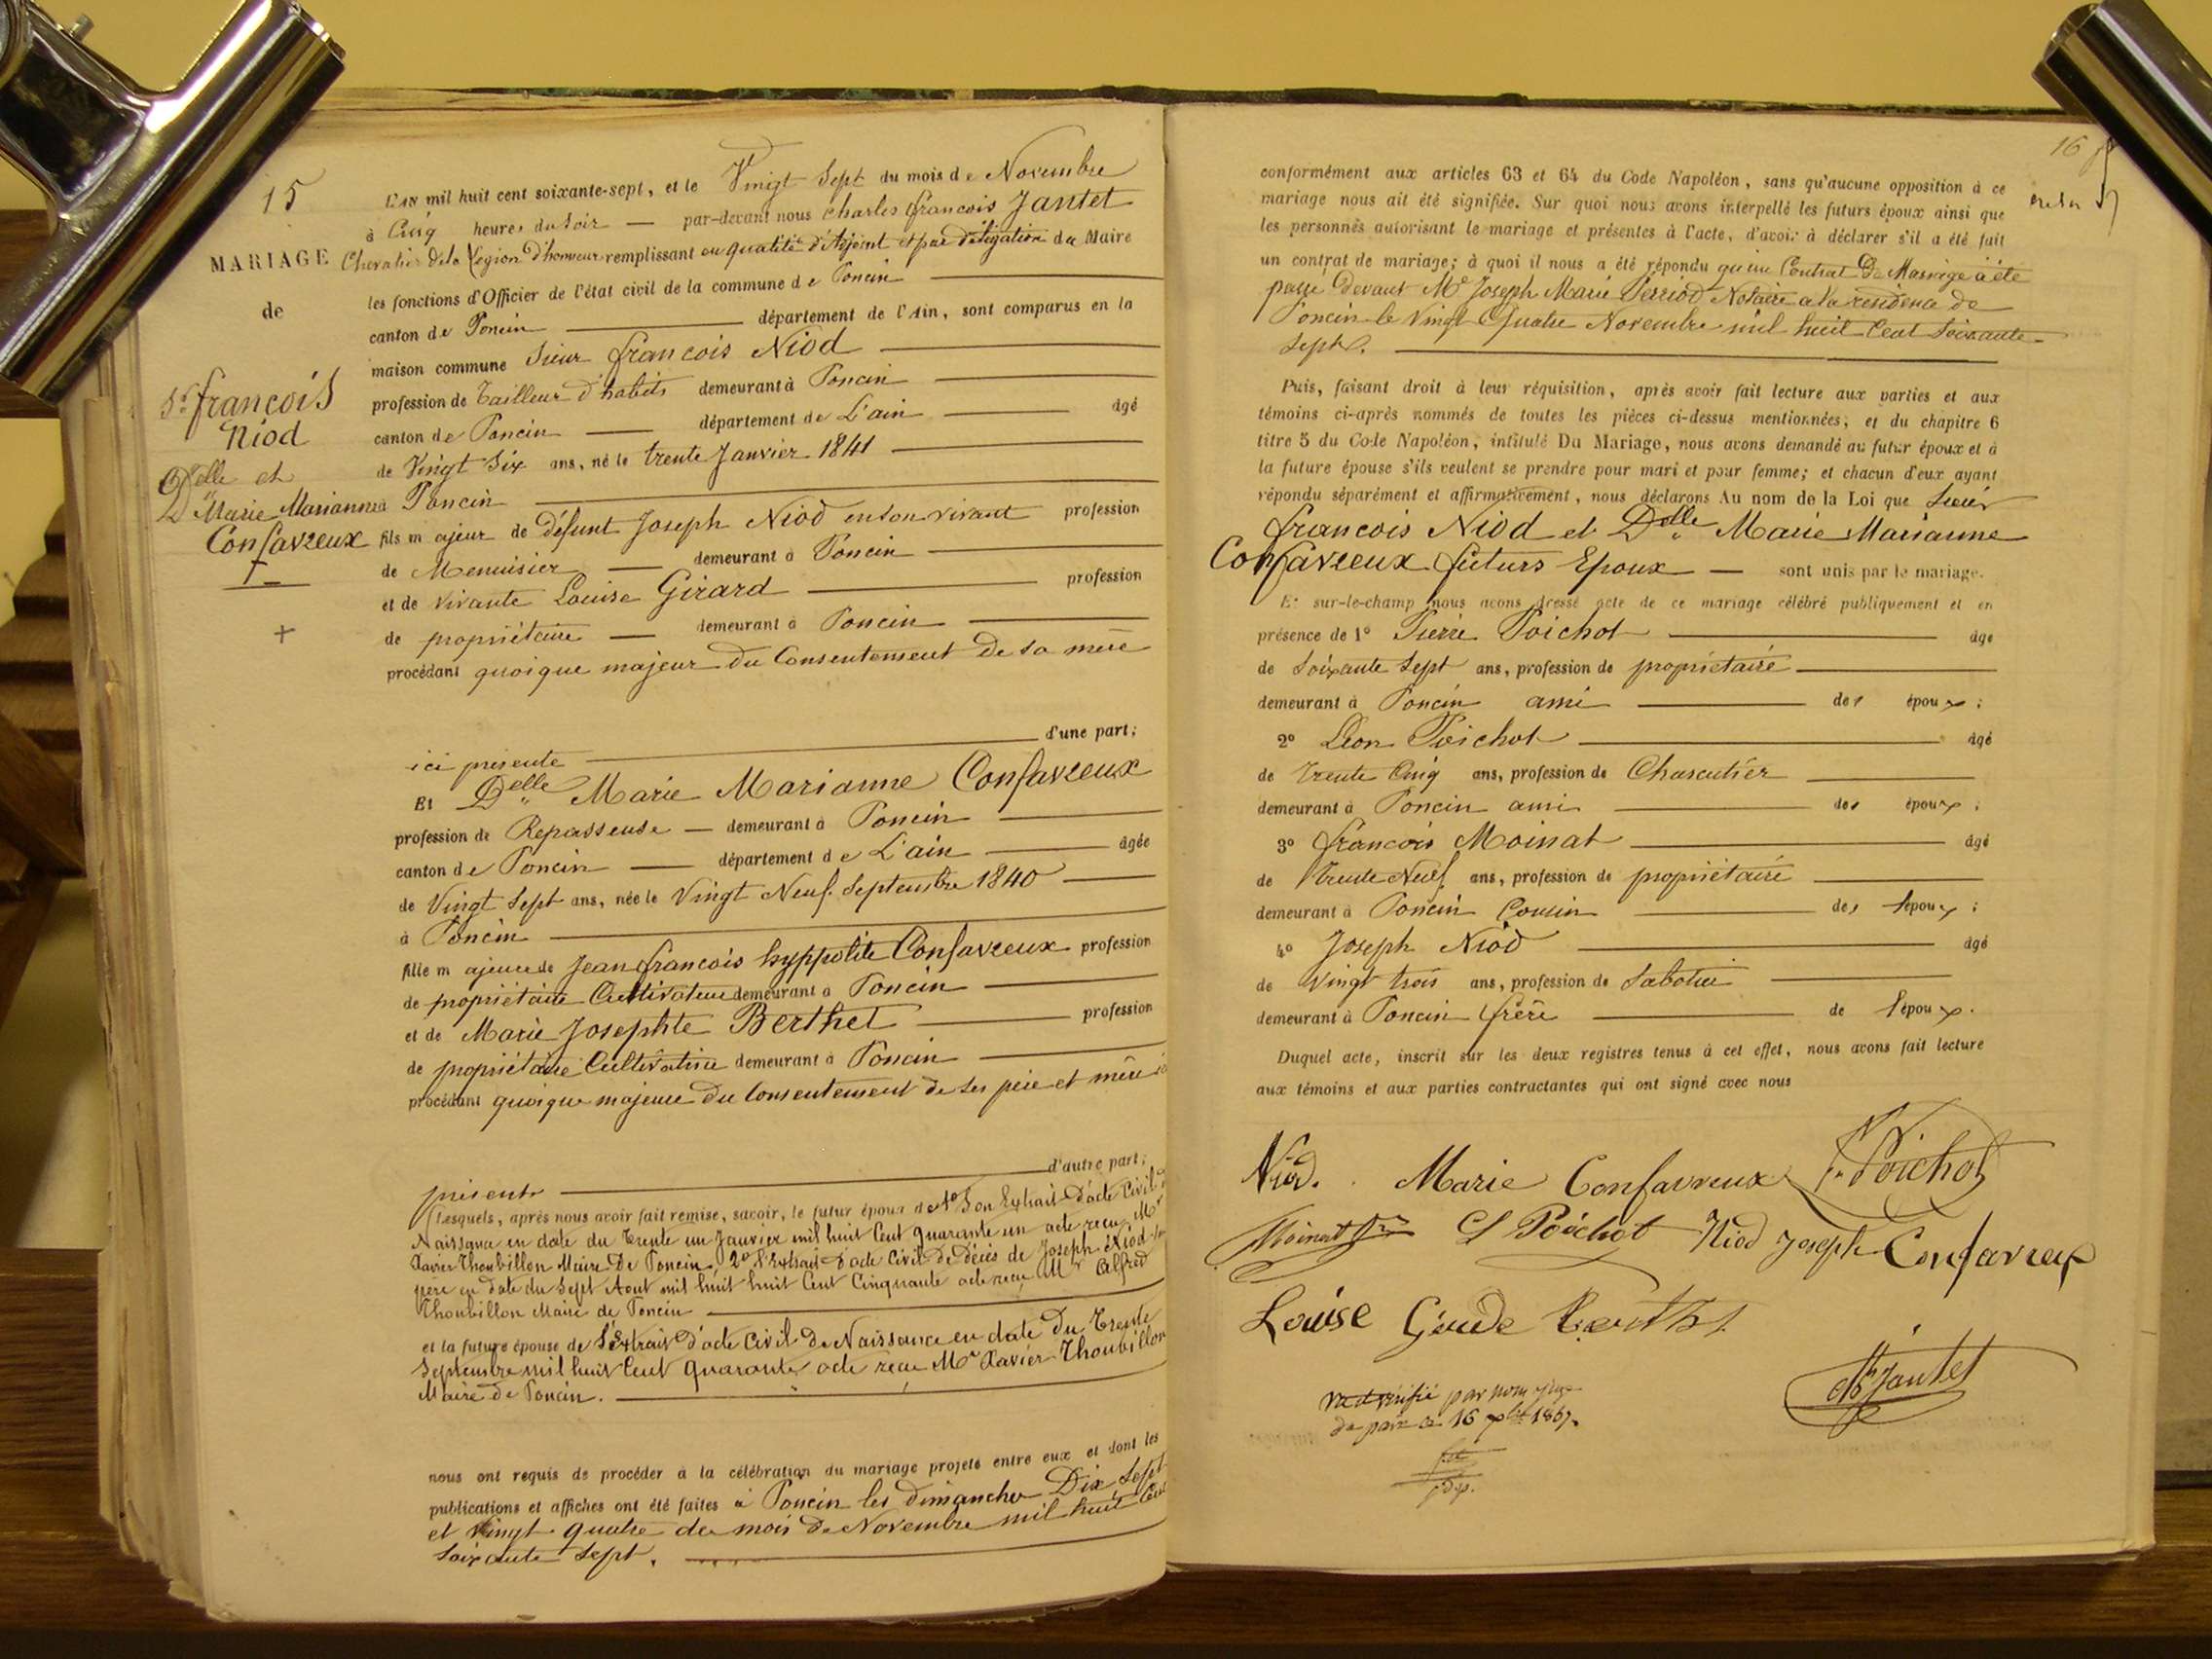 15
MARIAGE
de
Sr. françois
Niod
et
Delle
Marie Marianne
Confavreux
L'AN mil huit cent soixante-sept, et le Vingt Sept du mois de Novembre
à Cinq heures du Soir — par-devant nous Charles françois Jantet
Chevalier de la Légion d'honneur remplissant en qualité d'Adjoint et par délégation du Maire
les fonctions d'Officier de l'état civil de la commune de Poncin
canton de Poncin département de l'Ain, sont comparus en la
maison commune Sieur françois Niod
profession de Tailleur d'habits demeurant à Poncin
canton de Poncin département de L'ain âgé
de Vingt Six ans, né le trente Janvier 1841
à Poncin
fils majeur de défunt Joseph Niod en son vivant profession
de Menuisier demeurant à Poncin
et de vivante Louise Girard profession
de propriétaire demeurant à Poncin
procédant quoique majeur du Consentement de sa mère
ici présente d'une part;
Et Delle Marie Marianne Confavreux
profession de Repasseuse demeurant à Poncin
canton de Poncin département de L'ain âgée
de Vingt Sept ans, née le Vingt Neuf Septembre 1840
à Poncin
fille majeure de Jean françois hyppolite Confavreux profession
de propriétaire Cultivateur demeurant à Poncin
et de Marie Josephte Berthet profession
de propriétaire Cultivatrice demeurant à Poncin
procédant quoique majeure du Consentement de ses père et mère ici
présents d'autre part;
Lesquels, après nous avoir fait remise, savoir, le futur époux de 1º Son Extrait d'acte Civil de
Naissance en date du trente un Janvier mil huit Cent quarante un acte reçu Mr
Xavier Thoubillon Maire De Poncin, 2º l'Extrait d'acte Civil de décès de Joseph Niod son
père en date du Sept Aout mil huit huit Cent Cinquante acte reçu Mr Alfred
Thoubillon Maire de Poncin
et la future épouse de l'Extrait d'acte Civil de Naissance en date du Trente
Septembre mil huit Cent quarante acte reçu Mr Xavier Thoubillon
Maire de Poncin.
nous ont requis de procéder à la célébration du mariage projeté entre eux et dont les
publications et affiches ont été faites à Poncin les dimanches Dix Sept
et Vingt quatre du mois de Novembre mil huit Cent
Soixante Sept.
16
conformément aux articles 63 et 64 du Code Napoléon, sans qu'aucune opposition à ce
mariage nous ait été signifiée. Sur quoi nous avons interpellé les futurs époux ainsi que
les personnes autorisant le mariage et présentes à l'acte, d'avoir à déclarer s'il a été fait
un contrat de mariage; à quoi il nous a été répondu qu'un Contrat De Mariage a été
passé devant Me Joseph Marie Perriod Notaire à la résidence de
Poncin le Vingt Quatre Novembre mil huit Cent Soixante
Sept.
Puis, faisant droit à leur réquisition, après avoir fait lecture aux parties et aux
témoins ci-après nommés de toutes les pièces ci-dessus mentionnées, et du chapitre 6
titre 5 du Code Napoléon, intitulé Du Mariage, nous avons demandé au futur époux et à
la future épouse s'ils veulent se prendre pour mari et pour femme; et chacun d'eux ayant
répondu séparément et affirmativement, nous déclarons Au nom de la Loi que Sieur
françois Niod et Delle Marie Marianne
Confavreux futurs Epoux — sont unis par le mariage.
Et sur-le-champ nous avons dressé acte de ce mariage célébré publiquement et en
présence de 1º Pierre Poichot âgé
de Soixante Sept ans, profession de propriétaire
demeurant à Poncin ami des époux;
2º Léon Poichot âgé
de trente Cinq ans, profession de Charcutier
demeurant à Poncin ami des époux;
3º françois Moinat âgé
de trente Neuf ans, profession de propriétaire
demeurant à Poncin Cousin des époux;
4º Joseph Niod âgé
de Vingt trois ans, profession de Sabotier
demeurant à Poncin frère de l'époux.
Duquel acte, inscrit sur les deux registres tenus à cet effet, nous avons fait lecture
aux témoins et aux parties contractantes qui ont signé avec nous
Niod. Marie Confavreux Poichot
Moinat Poichot Niod Joseph Confavreux
Louise Berthet
Jantet
Vu et vérifié par nous juge
de paix ce 16 1867.